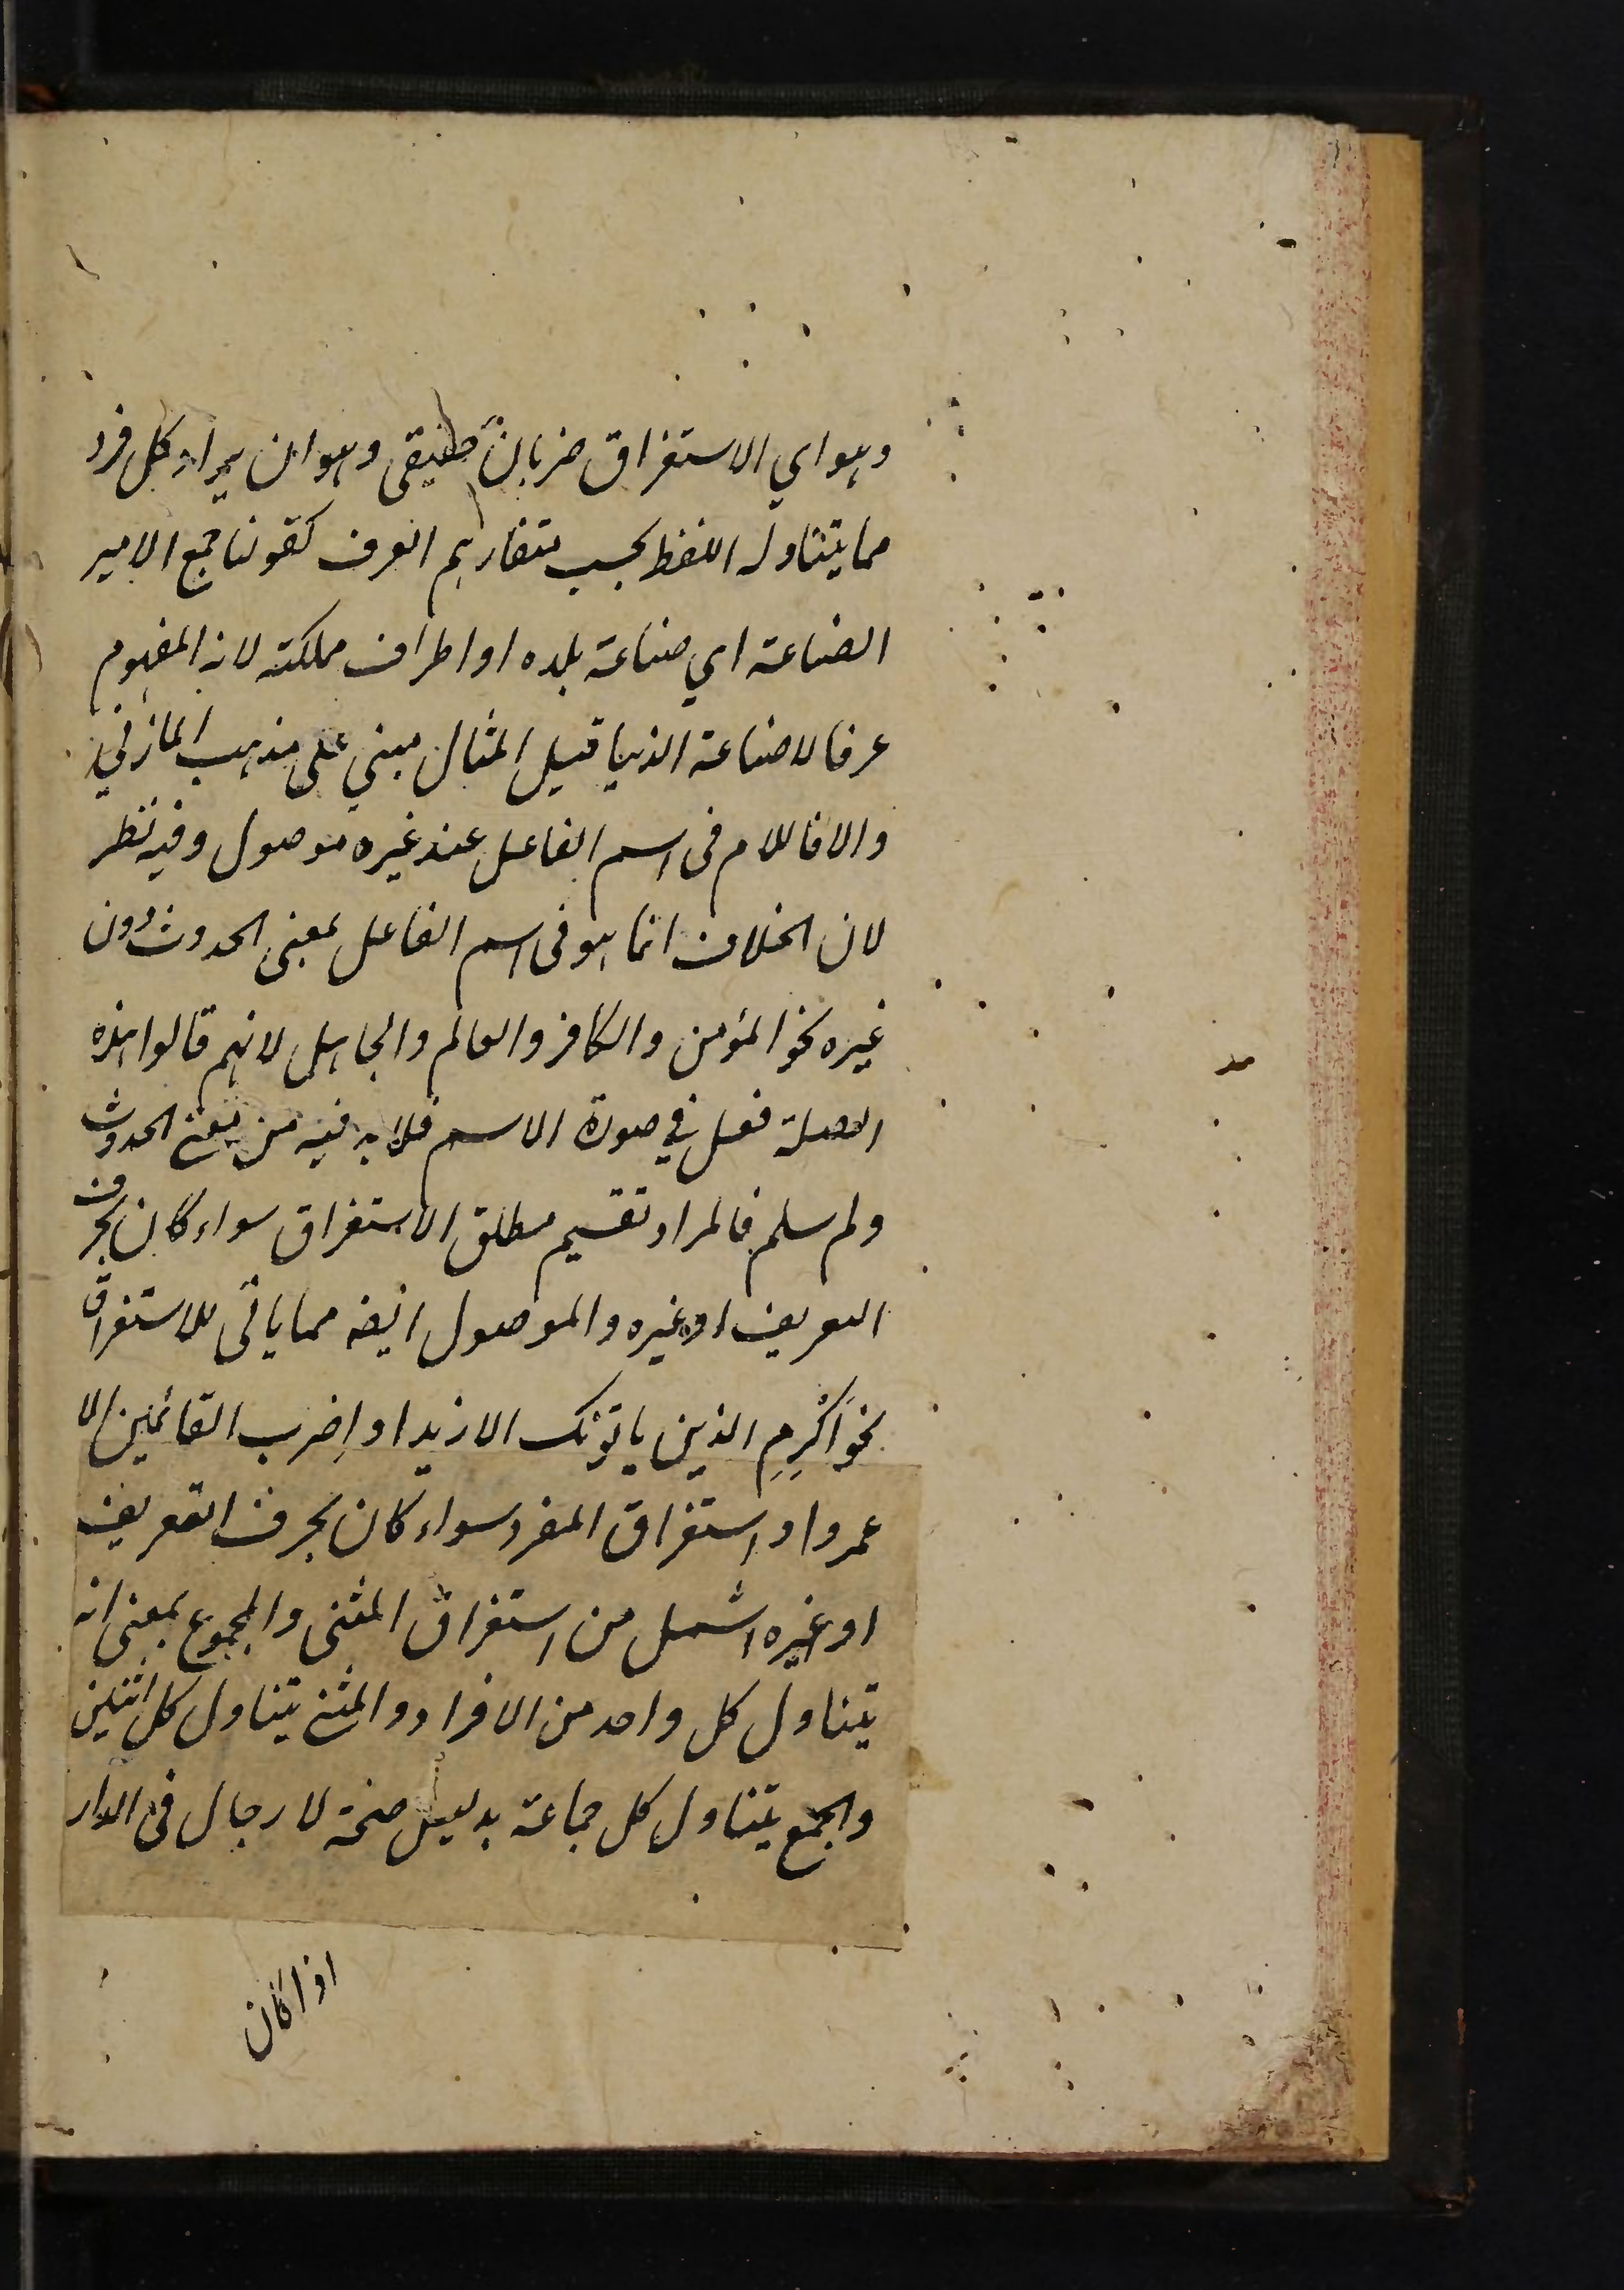 وهو اي الاستغراق ضربان حقيقى وهو ان يراد كل فرد
مما يتناوله اللفظ بحسب متفاهم العرف كقولنا جمع الامير
الصناعة اي صناعة بلده او اطراف مملكته لانه المفهوم
عرفا لا صناعة الدنيا قيل المثال مبني على مذهب المازني
والا فاللام فى اسم الفاعل عند غيره موصول وفيه نظر
لان الخلاف انما هو فى اسم الفاعل بمعنى الحدوث دون
غيره نحو المؤمن والكافر والعالم والجاهل لانهم قالوا هذه
الصلة فعل في صورة الاسم فلا بد فيه من معنى الحدوث
ولم سلم فالمراد تقسيم مطلق الاستغراق سواء كان بحرف
التعريف او غيره والموصول ايضه مما ياتى للاستغراق
نحو اَكْرِمِ الذين ياتونك الا زيدا و اِضرب القائمين الا
عمروا و استغراق المفرد سواء كان بحرف التعريف
او غيره اشمل من استغراق المثنى والمجموع بمعنى انه
يتناول كل واحد من الافراد والمثنى يتناول كل اثنين
والجمع يتناول كل جماعة بدليل صحة لا رجال فى الدار
اذا كان